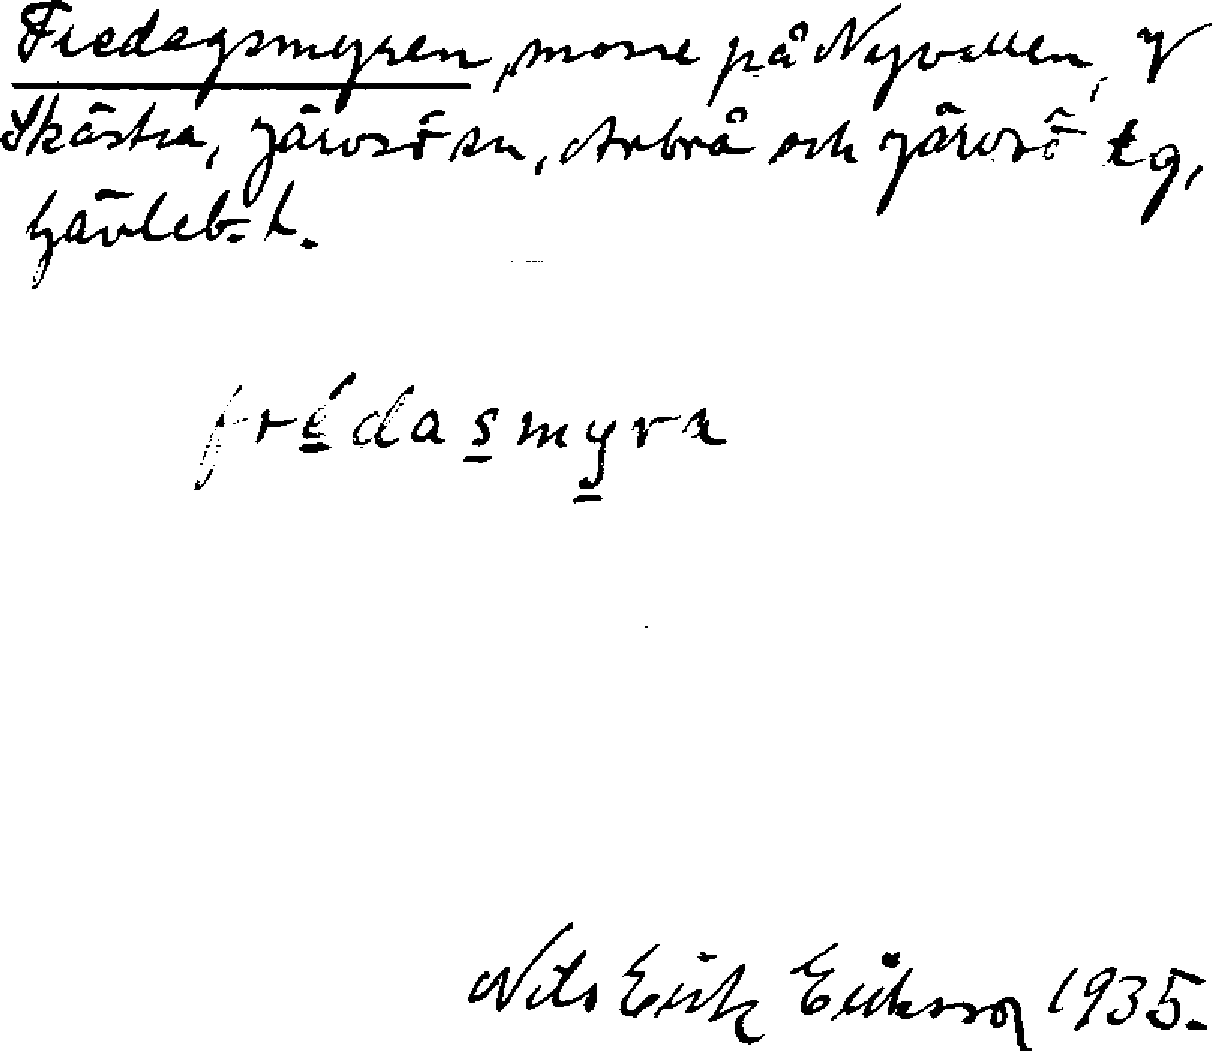 Fredagsmyren, mosse på Nyvallen, V
Skästra, Järvsö sn, Arbrå och Järvsö tg,
Gävleb. l.
frédasmyra
Nils Erik Eriksson 1935.